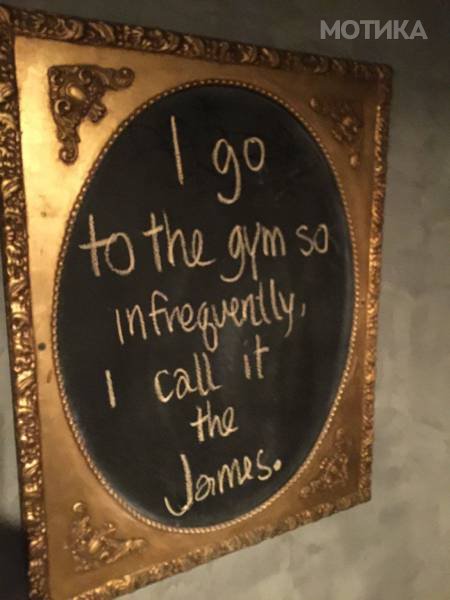 МОТИКА
I go
to the gym so
infrequently,
I call it
the
James.